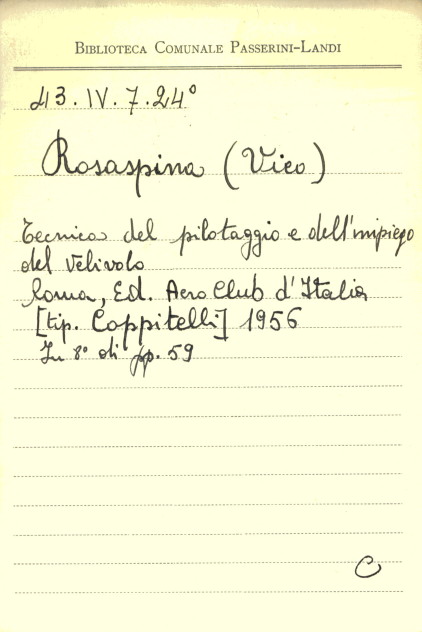 BIBLIOTECA COMUNALE PASSERINI-LANDI
43.IV.7.24°
Rosaspina (Vico)
Tecnica del pilotaggio e dell'impiego
del velivolo
Roma, Ed. Aero Club d'Italia
[tip. Coppitelli] 1956
In 8° di pp. 59
C